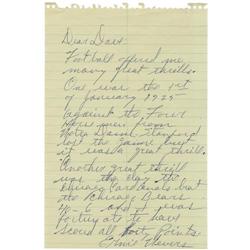 Dear Dave:
Football offered me
many great thrills.
One was the 1st
of January 1925
against the Four
Horsemen from
Notre Dame Stanford
lost the game but
it was a great thrill.
Another great thrill
was the day the
Chicago Cardinals beat
the Chicago Bears
40 - 6 and I was
fortunate to have
scored all forty points
Ernie Nevers